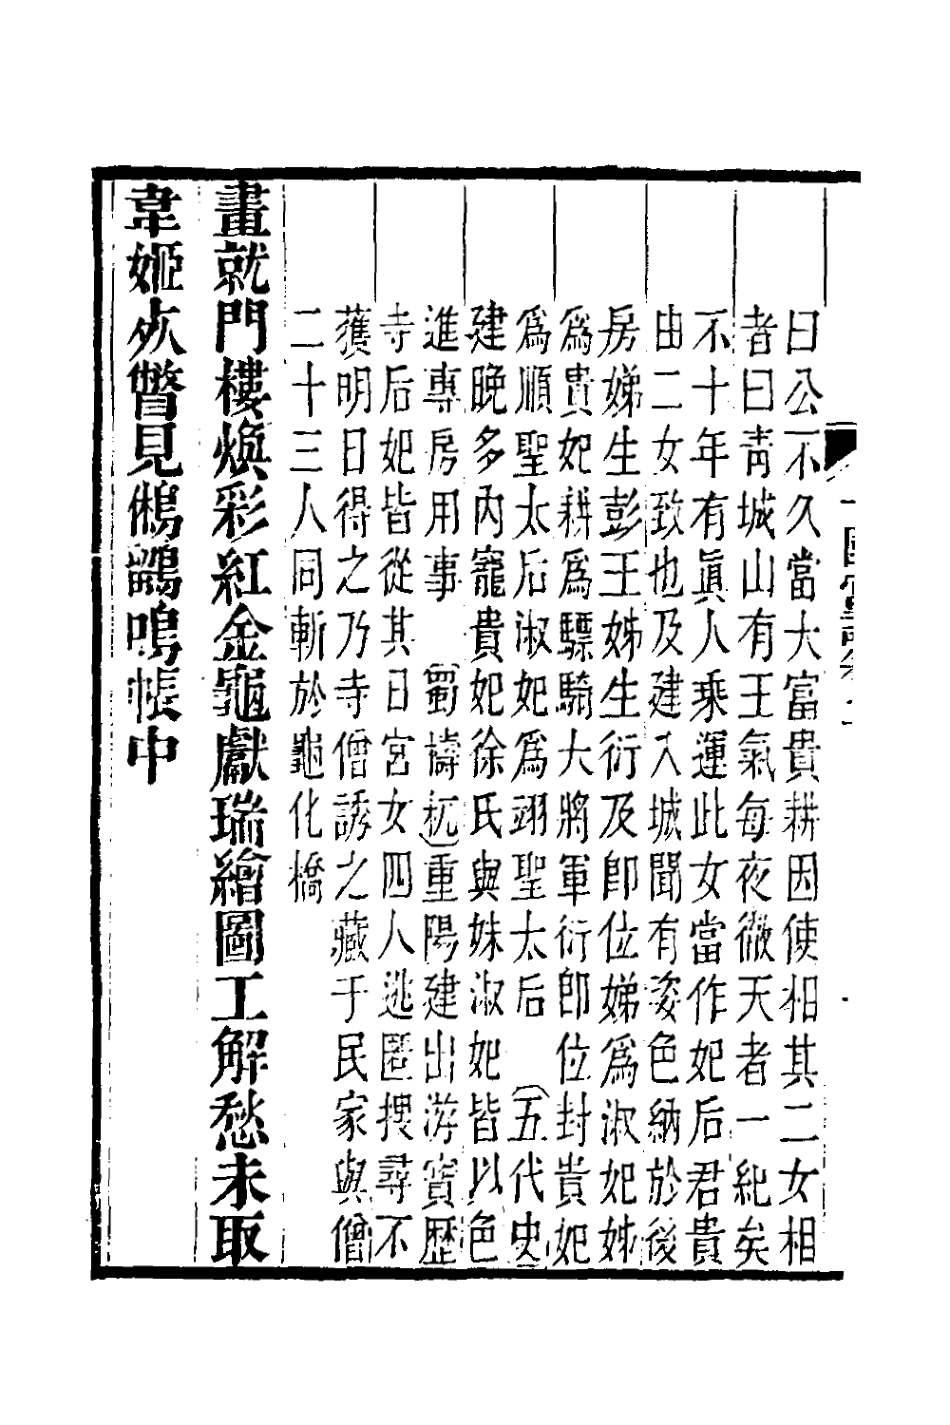 曰公不久當大富貴耕因使相其二女相
者曰靑城山有王氣每夜徹天者一紀矣
不十年有眞人乘運此女當作妃后君貴
由二女致也及建入城聞有姿色納於後
房娣生彭王姊生衍及卽位娣爲淑妃姊
爲貴妃耕爲驃騎大將軍衍卽位封貴妃
爲順聖太后淑妃爲翊聖太后 五代史
建晚多內寵貴妃徐氏與妹淑妃皆以色
進專房用事 蜀檮杌 重陽建出游寶歷
寺后妃皆從其日宮女四人逃匿搜尋不
獲明日得之乃寺僧誘之藏于民家與僧
二十三人同斬於龜化橋
畫就門樓煥彩紅金龜獻瑞繪圖工解愁未取
韋姬㚲瞥見鵂鶹鳴帳中